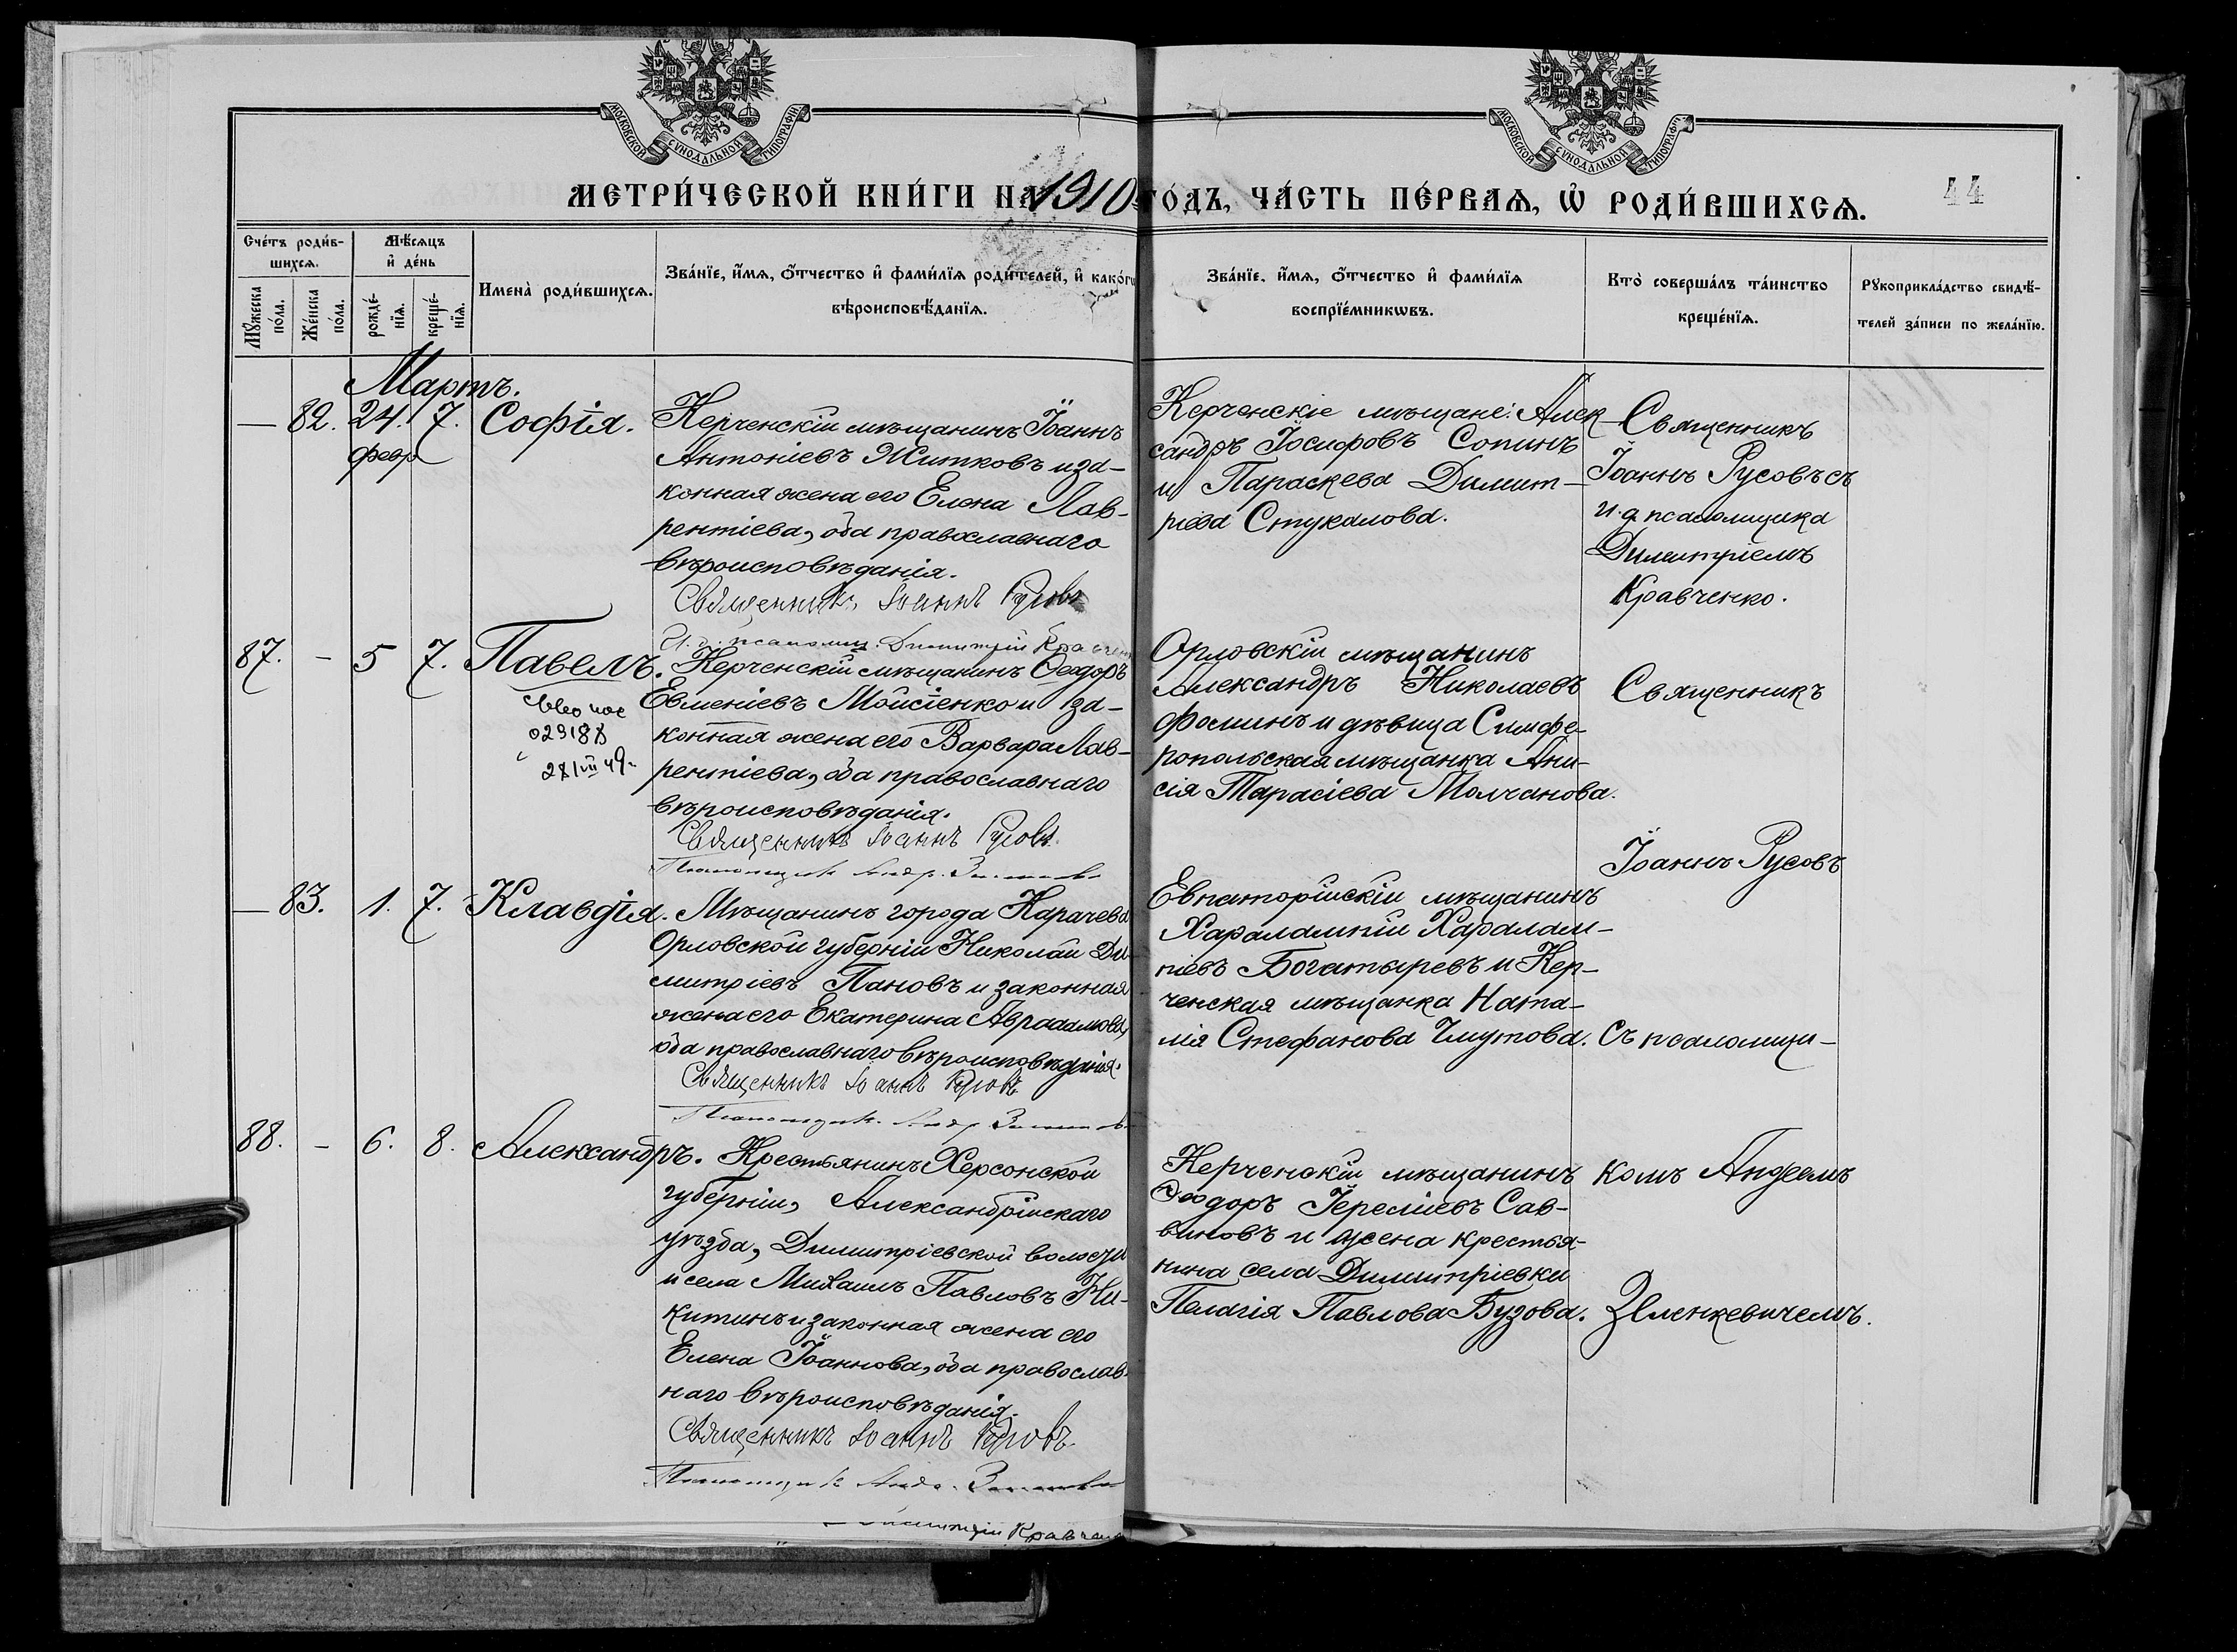 МОСКОВСКОЙ СѴНОДАЛЬНОЙ ТИПОГРАФІИ
МОСКОВСКОЙ СѴНОДАЛЬНОЙ ТИПОГРАФІИ
МЕТРИ́ЧЕСКОЙ КНИ́ГИ НА 1910 ГО́ДЪ, ЧА́СТЬ ПЕ́РВАѦ, Ѡ҆ РОДИ́ВШИХСѦ.
44
Сче́тъ роди́в-
шихсѧ.
Мѣ́сѧцъ
и҆ де́нь
Мꙋ́жеска
по́ла.
Же́нска
по́ла.
рожде́-
нїѧ.
креще́-
нїѧ.
Имена̀ роди́вшихсѧ.
Зва́нїе, и҆́мѧ, ѻ҆́тчество и҆ фами́лїѧ роди́телей, и҆ како́гѡ
вѣроисповѣ́данїѧ.
Зва́нїе, и҆́мѧ, ѻ҆́тчество и҆ фами́лїѧ
воспрїе́мникѡвъ.
Кто̀ соверша́лъ та́инство
креще́нїѧ.
Рꙋкоприкла́дство свидѣ́-
телей за́писи по жела́нїю.
Мартъ.
— 82. 24. 7. Софія.
февр
Керченскій мѣщанинъ Іоаннъ
Антоніевъ Житковъ и за-
конная жена его Елена Лав-
рентіева, оба православнаго
вѣроисповѣданія.
Священникъ Іоаннъ Русовъ
И. д. псаломщ. Димитрій Кравченко
Керченскіе мѣщане: Алек-
сандръ Іосифовъ Сопинъ
и Параскева Димит-
ріева Стукалова.
Священникъ
Іоаннъ Русовъ съ
и. д. псаломщика
Димитріемъ
Кравченко.
87. - 5 7. Павелъ.
029188
28/VII 49г.
Керченскій мѣщанинъ Ѳеодоръ
Евменіевъ Мойсіенко и за-
конная жена его Варвара Лав-
рентіева, оба православнаго
вѣроисповѣданія.
Священникъ Іоаннъ Русовъ.
Псаломщикъ Андр.
Орловскій мѣщанинъ
Александръ Николаевъ
Фоминъ и дѣвица Симфе-
ропольская мѣщанка Ани-
сія Тарасіева Молчанова.
Священникъ
Іоаннъ Русовъ
— 83. 1. 7. Клавдія.
Мѣщанинъ города Карачева
Орловской губерніи Николай Ди-
митріевъ Пановъ и законная
жена его Екатерина Авраамова,
оба православнаго вѣроисповѣданія.
Священникъ Іоаннъ Русовъ
Псаломщикъ. Андр.
Евпаторійскій мѣщанинъ
Харалампій Харалам-
піевъ Богатыревъ и Кер-
ченская мѣщанка Ната-
лія Стефанова Чмутова.
Съ псаломщи-
88. - 6. 8. Александръ.
Крестьянинъ Херсонской
губерніи, Александрійскаго
уѣзда, Димитріевской волости
и села Михаилъ Павловъ Ни-
китинъ и законная жена его
Елена Іоаннова, оба православ-
наго вѣроисповѣданія.
Священникъ Іоаннъ Русовъ
Псаломщикъ Андр.
Керченскій мѣщанинъ
Ѳеодоръ Іереміевъ Сав-
виновъ и жена крестья-
нина села Димитріевки
Пелагія Павлова Бузова.
комъ Андреемъ
Зеленкевичемъ.
Димитрій Кравченко